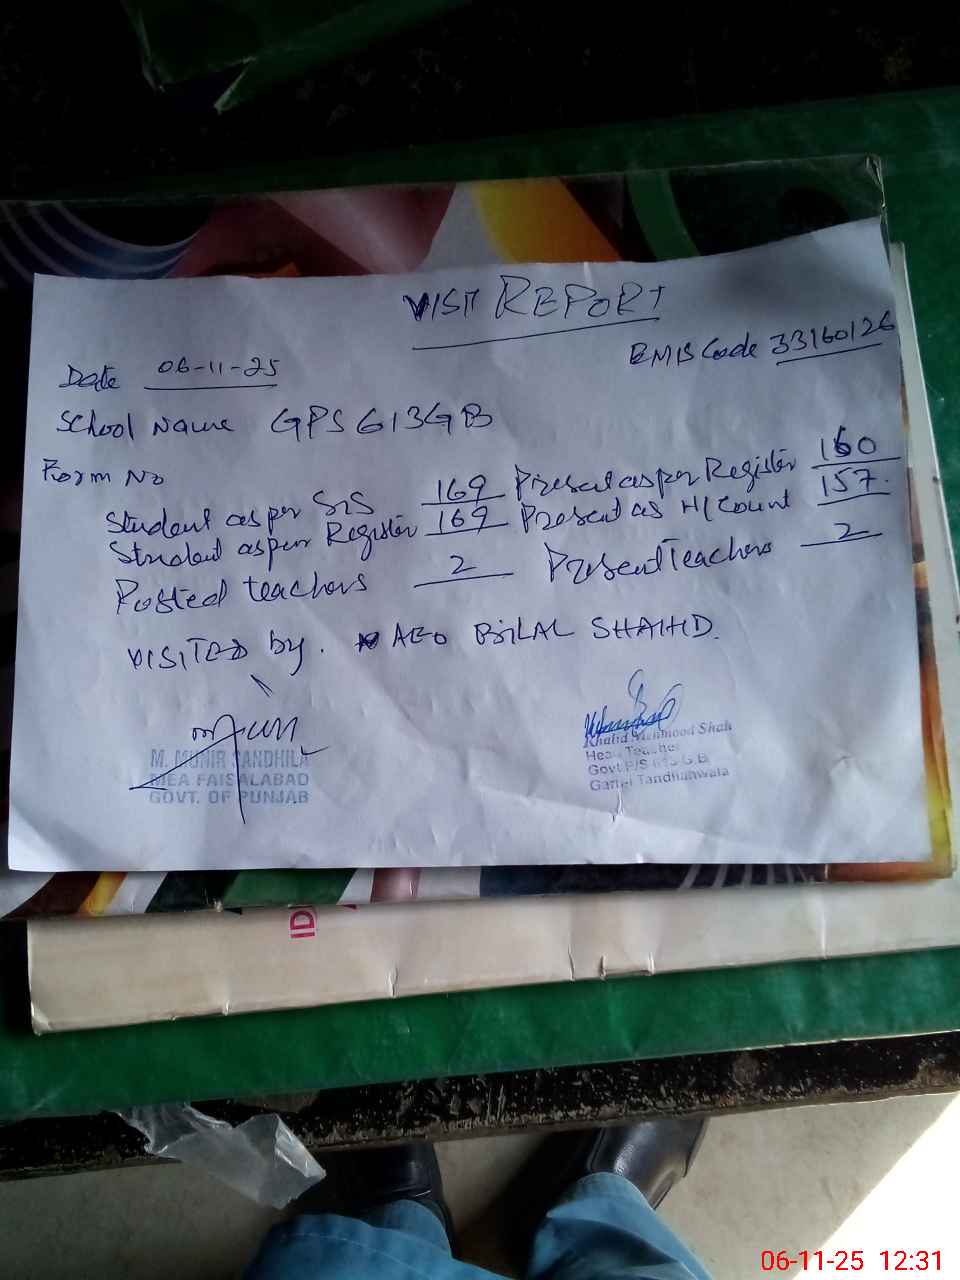 VISIT REPORT
EMIS Code 33160126
Date 06-11-25
School Name GPS 613 GB
Form No
Student as per SIS 169 Present as per Register 160
Student as per Register 169 Present as H/Count 157.
Posted teachers 2 Present Teachers 2
VISITED by. AEO BILAL SHAHID.
M. MUNIR SANDHILA
MEA FAISALABAD
GOVT. OF PUNJAB
Khalid Mehmood Shah
Head Teacher
Govt P/S 613 G.B
Tandlianwala
ID
06-11-25 12:31